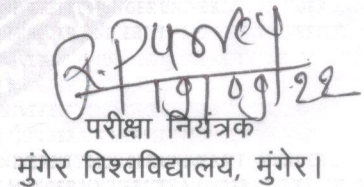 R. Pandey
19/09/22
परीक्षा नियंत्रक
मुंगेर विश्वविद्यालय, मुंगेर।